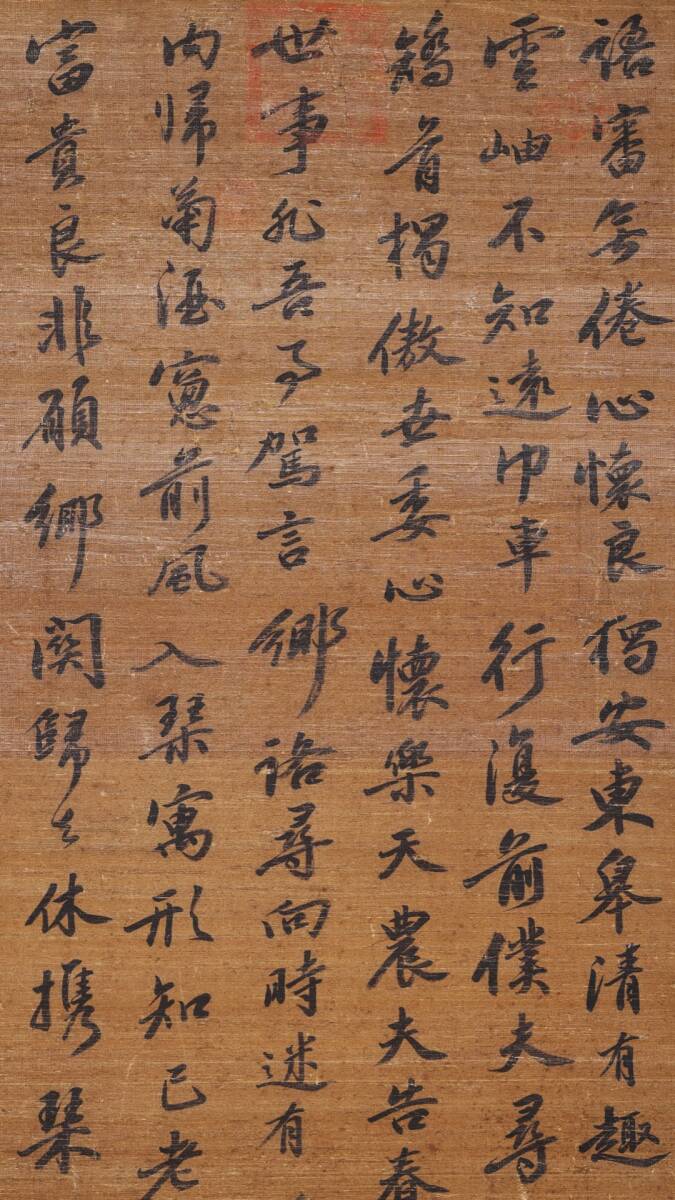 語審無倦心懷良獨安東皐清有趣
雲岫不知遠巾車行復前僕夫尋
矯首獨傲世委心懷樂天農夫告春
世事非吾事駕言鄉路尋向時迷有
内歸菊酒窻前風入琴寓形知已老
富貴良非願鄉關歸去休攜琴